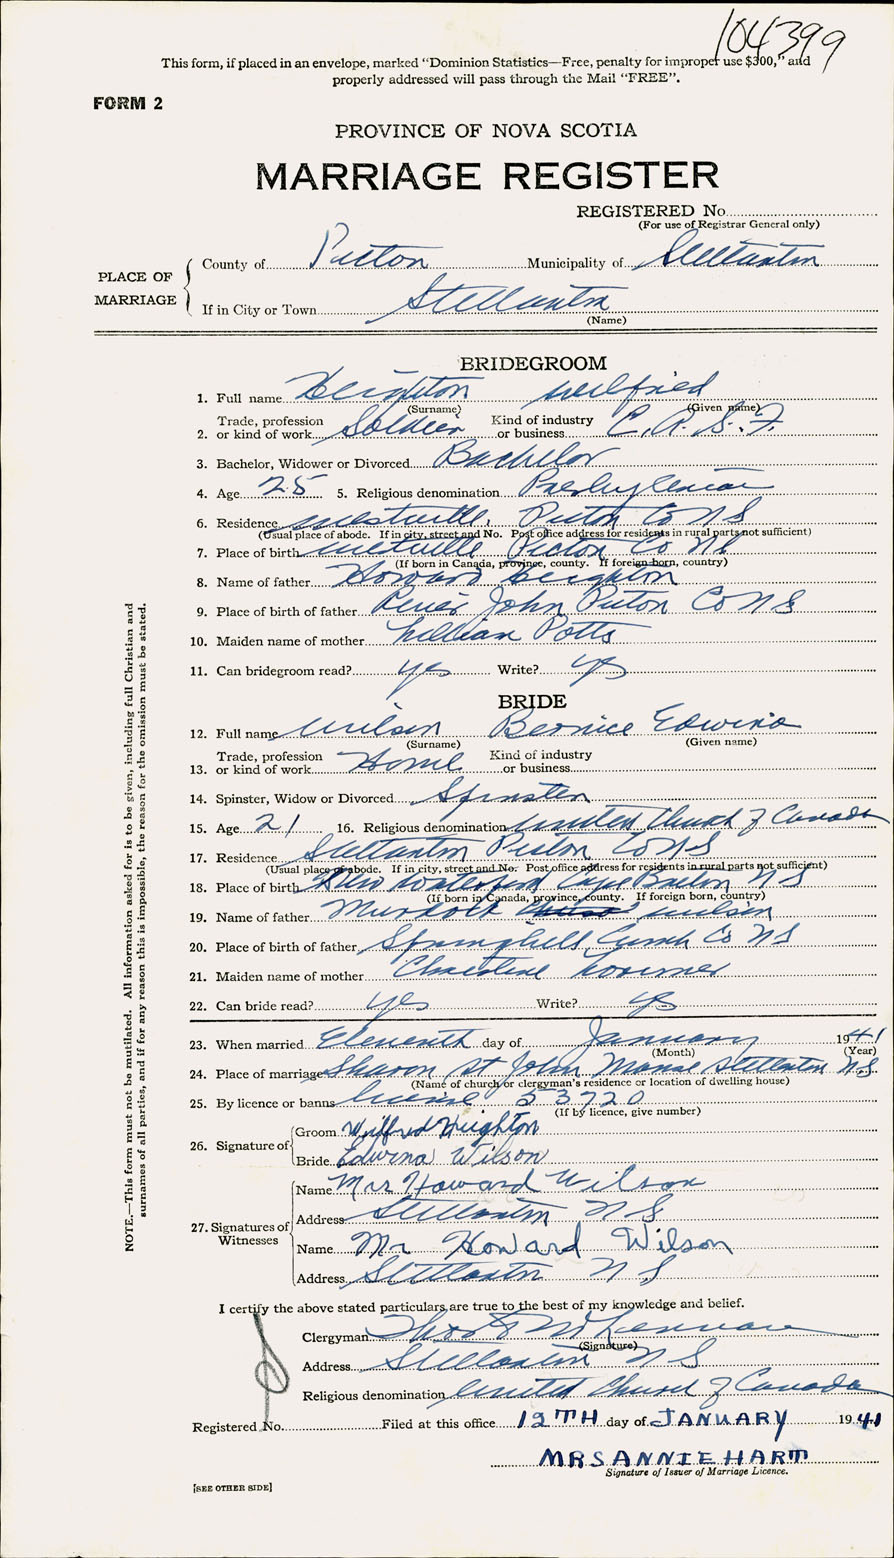 104399
This form, if placed in an envelope, marked "Dominion Statistics—Free, penalty for improper use $300," and
properly addressed will pass through the Mail "FREE".
FORM 2
PROVINCE OF NOVA SCOTIA
MARRIAGE REGISTER
REGISTERED No.
(For use of Registrar General only)
PLACE OF MARRIAGE
County of Pictou Municipality of Stellarton
If in City or Town Stellarton
(Name)
BRIDEGROOM
1. Full name Heighton Wilfried
(Surname) (Given name)
2. Trade, profession or kind of work Soldier Kind of industry or business C. A. S. F.
3. Bachelor, Widower or Divorced Bachelor
4. Age 25 5. Religious denomination Presbyterian
6. Residence Westville, Pictou Co N S
(Usual place of abode. If in city, street and No. Post office address for residents in rural parts not sufficient)
7. Place of birth Westville Pictou Co N S
(If born in Canada, province, county. If foreign born, country)
8. Name of father Howard Heighton
9. Place of birth of father River John Pictou Co N S
10. Maiden name of mother Lillian Potts
11. Can bridegroom read? yes Write? yes
BRIDE
12. Full name Wilson Bernice Edwina
(Surname) (Given name)
13. Trade, profession or kind of work Home Kind of industry or business
14. Spinster, Widow or Divorced Spinster
15. Age 21 16. Religious denomination United Church of Canada
17. Residence Stellarton Pictou Co N S
(Usual place of abode. If in city, street and No. Post office address for residents in rural parts not sufficient)
18. Place of birth New Waterford Cape Breton N S
(If born in Canada, province, county. If foreign born, country)
19. Name of father Murdock Wilson
20. Place of birth of father Springhill Cumb Co N S
21. Maiden name of mother Christine
22. Can bride read? yes Write? yes
23. When married Eleventh day of January 1941
(Month) (Year)
24. Place of marriage Sharon St John Manse Stellarton N.S.
(Name of church or clergyman's residence or location of dwelling house)
25. By licence or banns license 53720
(If by licence, give number)
26. Signature of Groom Wilfred Heighton
Bride Edwina Wilson
27. Signatures of Witnesses
Name Mrs Howard Wilson
Address Stellarton N S
Name Mr Howard Wilson
Address Stellarton N S
I certify the above stated particulars are true to the best of my knowledge and belief.
Clergyman
(Signature)
Address Stellarton N S
Religious denomination United Church of Canada
Registered No. Filed at this office 12TH day of JANUARY 1941
MRS ANNIE HART
Signature of Issuer of Marriage Licence.
[SEE OTHER SIDE]
NOTE.—This form must not be mutilated. All information asked for is to be given, including full Christian and
surnames of all parties, and if for any reason this is impossible, the reason for the omission must be stated.